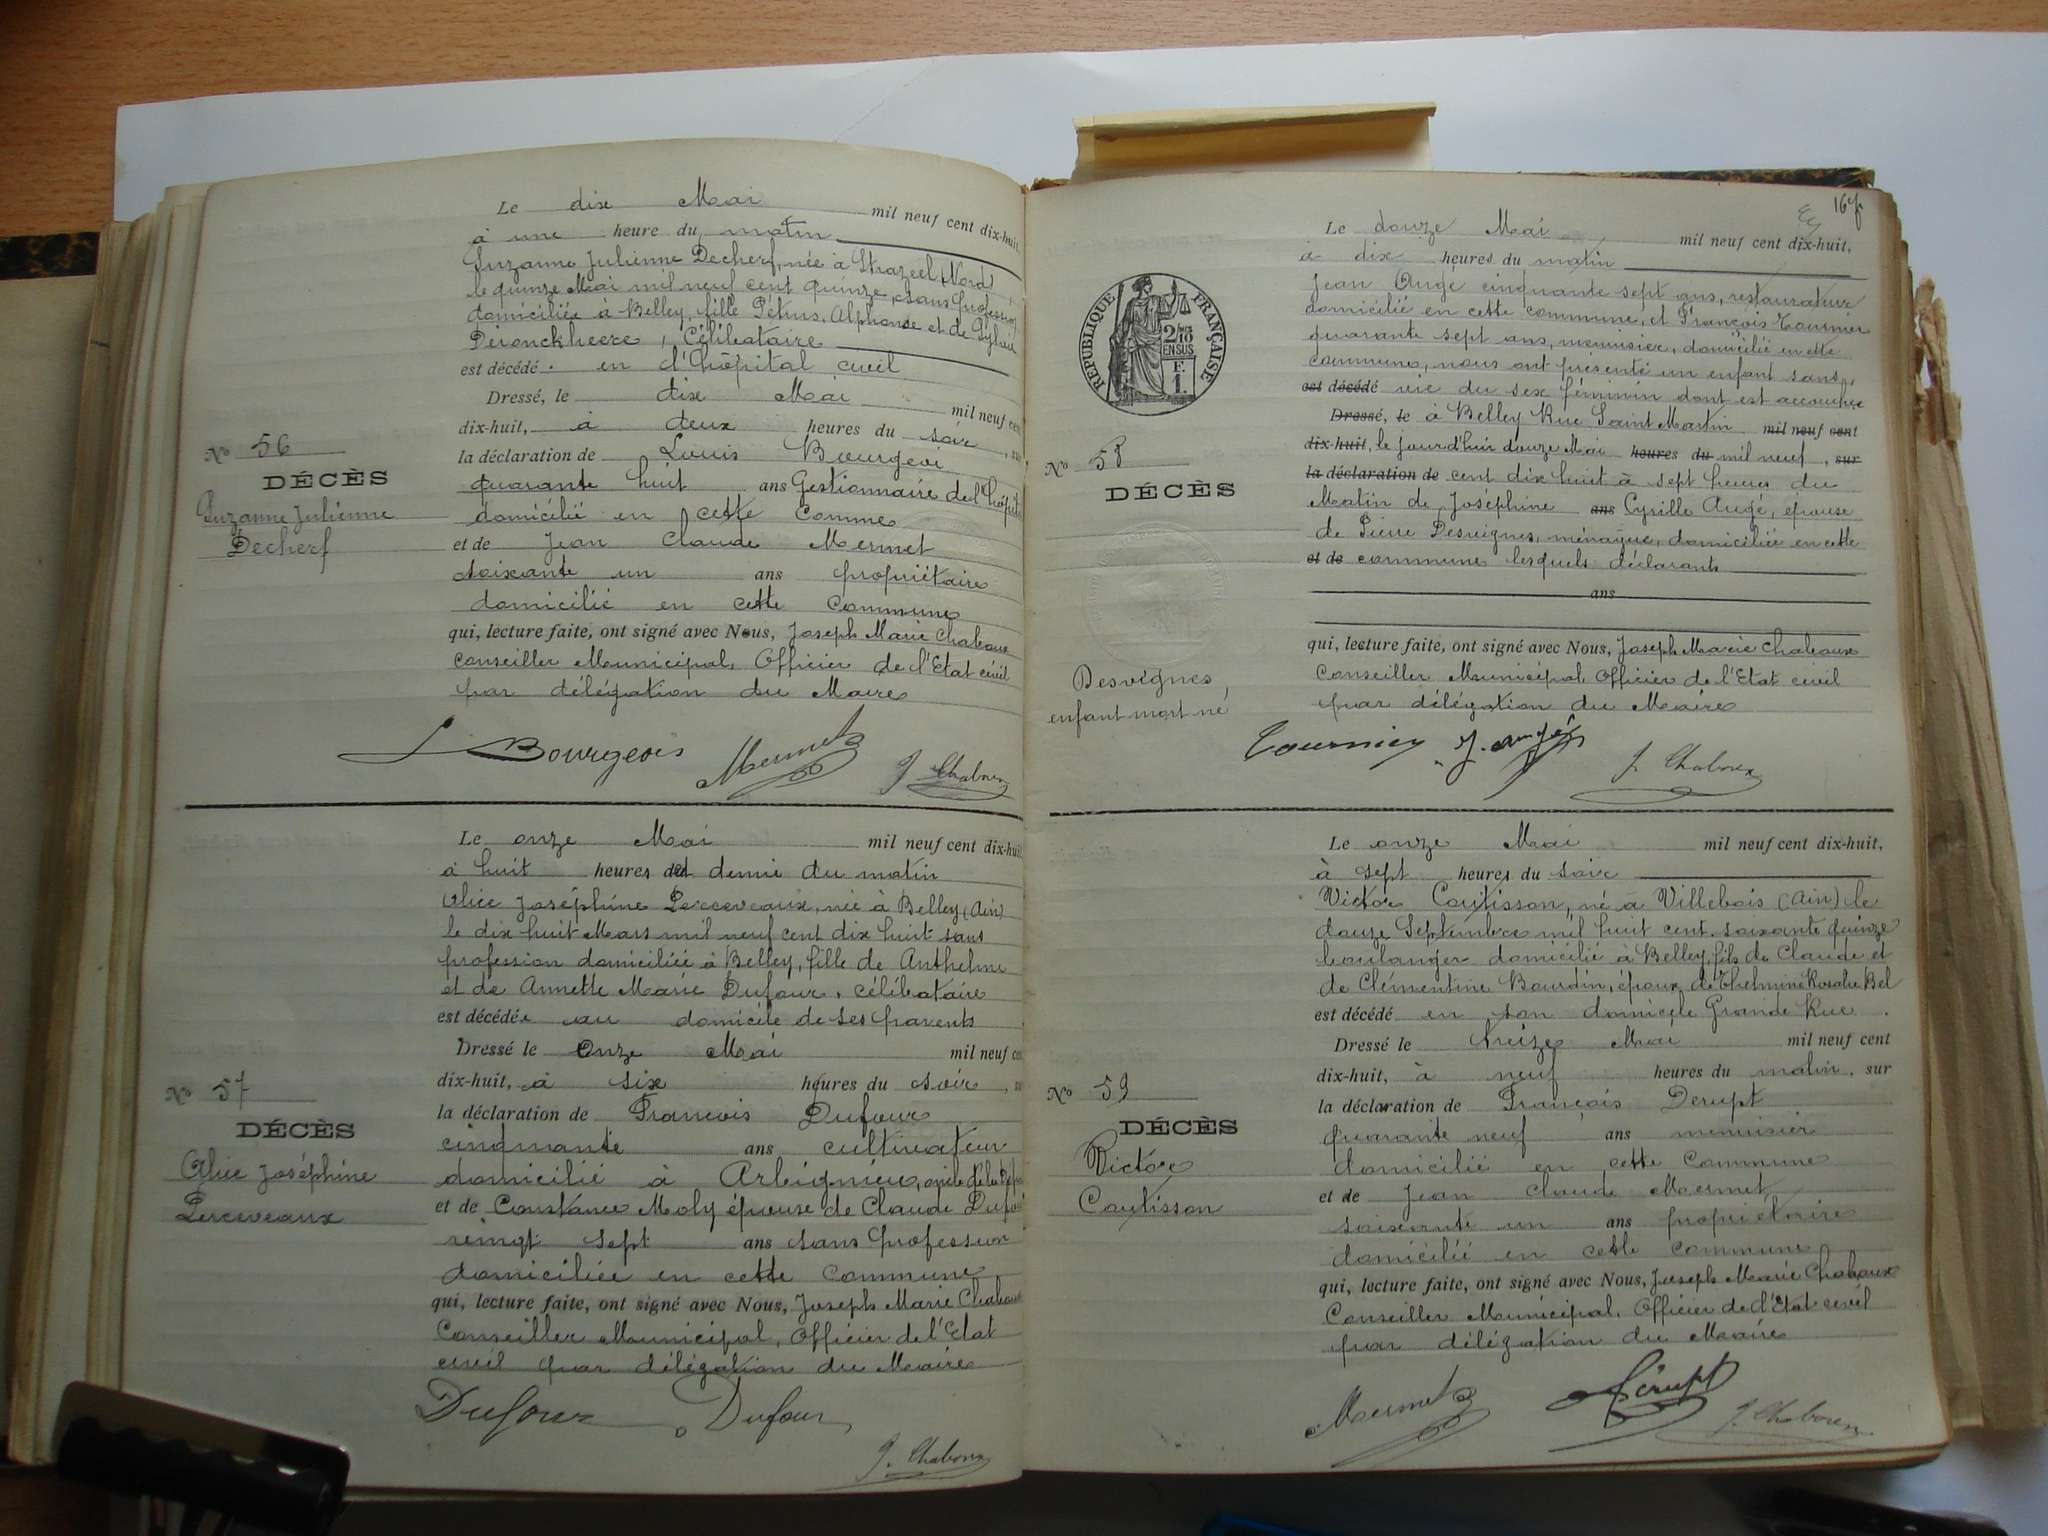 Le dix Mai mil neuf cent dix-huit,
à une heure du matin
Suzanne Julienne Decherf, née à Strazeel (Nord)
le quinze Mai mil neuf cent quinze, sans profession
domiciliée à Belley, fille Pétrus, Alphonse et de Sylvie
est décédé en l'hôpital civil
Célibataire
Dressé, le dix Mai mil neuf cent
dix-huit, à deux heures du soir
No 56
la déclaration de Louis Bourgeoi
DÉCÈS
quarante huit ans Gestionnaire de l'hôpital
Suzanne Julienne
domicilié en cette Comme
Decherf
et de Jean Claude Mermet
soixante un ans propriétaire
domicilié en cette Commune
qui, lecture faite, ont signé avec Nous, Joseph Marie Chaboux
Conseiller Municipal, Officier de l'Etat civil
par délégation du Maire
L Bourgeois Mermet J. Chaboux
Le onze Mai mil neuf cent dix-huit
à huit heures et demie du matin
Alice Joséphine Perceveaux, née à Belley (Ain)
le dix huit Mars mil neuf cent dix huit sans
profession domiciliée à Belley, fille de Anthelme
et de Annette Marie Dufour, célibataire
est décédée au domicile de ses parents
Dressé le Onze Mai mil neuf cent
No 57
dix-huit, à six heures du soir
DÉCÈS
la déclaration de François Dufour
cinqmante ans cultivateur
Alice Joséphine
domicilié à Arbignieu, oncle de la
Perceveaux
et de Constance Moly épouse de Claude Dufour
vingt sept ans sans profession
domiciliée en cette Commune
qui, lecture faite, ont signé avec Nous, Joseph Marie Chaboux
Conseiller Municipal, Officier de l'Etat
civil par délégation du Maire
Dufour Dufour
J. Chaboux
167
Le douze Mai mil neuf cent dix-huit,
à dix heures du matin
Jean Augé cinquante sept ans, restaurateur
domicilié en cette commune, et François Tournier
quarante sept ans, menuisier, domicilié en cette
commune, nous ont présenté un enfant sans
est décédé vie du sex féminin dont est accouchée
Dressé, le à Belley Rue Saint Martin mil neuf cent
dix-huit, le jourd'hui douze Mai heures du mil neuf, sur
la déclaration de cent dix huit à sept heures du
Matin de Joséphine ans Cyrille Augé, épouse
de Pierre Desvignes, ménagère, domiciliée en cette
et de commune lesquels déclarants
ans
RÉPUBLIQUE FRANÇAISE
2/10 EN SUS
F. 1.
No 58
DÉCÈS
Desvignes,
enfant mort né
qui, lecture faite, ont signé avec Nous, Joseph Marie Chaboux
Conseiller Municipal Officier de l'Etat civil
par délégation du Maire
Tournier J. Augé J. Chaboux
Le onze Mai mil neuf cent dix-huit,
à sept heures du soir
Victor Coutisson, né à Villebois (Ain) le
douze Septembre mil huit cent soixante quinze
boulanger domicilié à Belley, fils de Claude et
de Clémentine Bourdin, époux de Thelmine Rosalie Bel
est décédé en son domicile Grande Rue
Dressé le treize Mai mil neuf cent
No 59
dix-huit, à neuf heures du matin, sur
la déclaration de François Derupt
DÉCÈS
quarante neuf ans menuisier
Victor
domicilié en cette Commune
Coutisson
et de Jean Claude Mermet
soixante un ans propriétaire
domicilié en cette commune
qui, lecture faite, ont signé avec Nous, Joseph Marie Chaboux
Conseiller Municipal, Officier de l'Etat civil
par délégation du Maire
Mermet Dérupt J. Chaboux